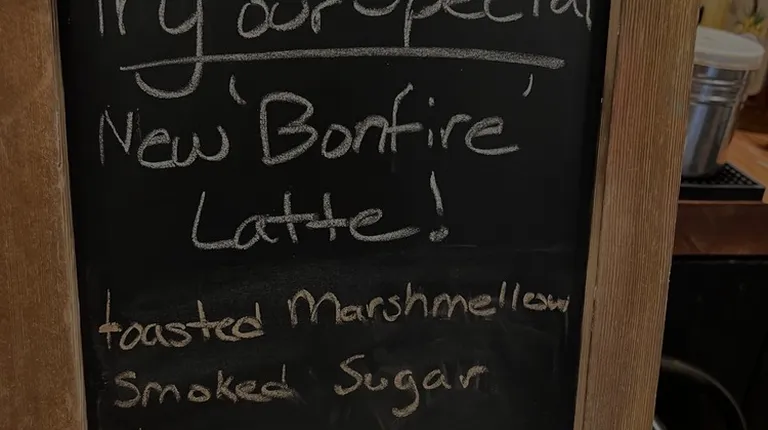 Try our Special
New 'Bonfire'
Latte!
toasted Marshmellow
Smoked Sugar